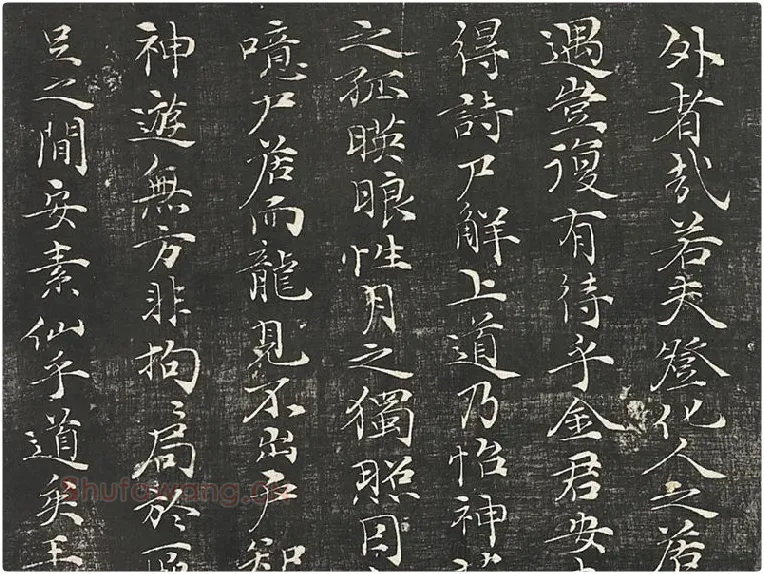 外者哉若夫登化人之居
遇豈復有待乎金君安
得詩尸解上道乃怡神
之孤暎眼性月之獨照因
噫尸居而龍見不出戶知
神遊無方非拘局於
足之間安素仙乎道矣王
Shufawang.cn